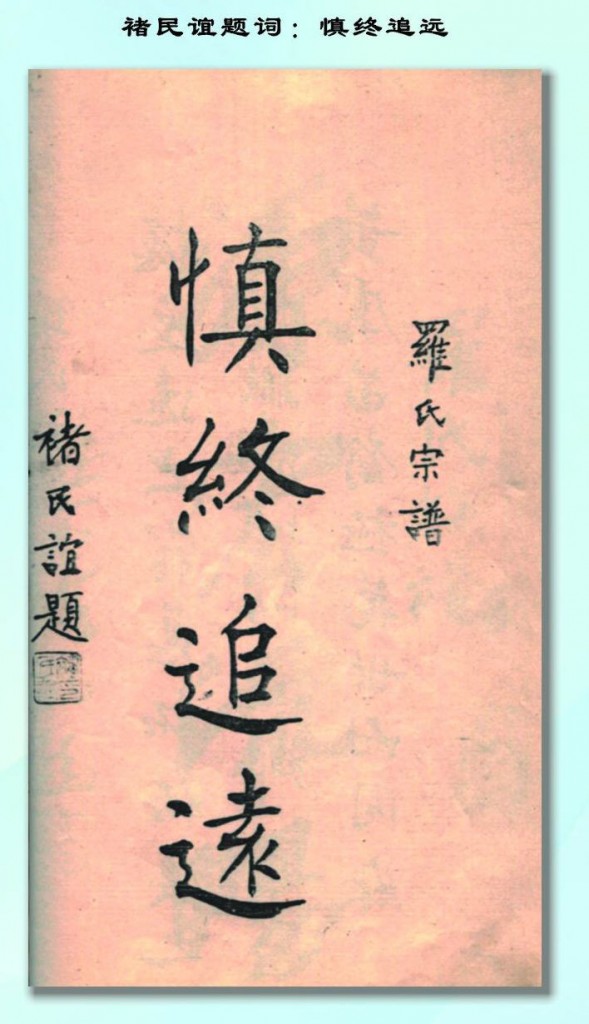 褚民谊题词：慎终追远
羅氏宗譜
慎終追遠
褚民誼題